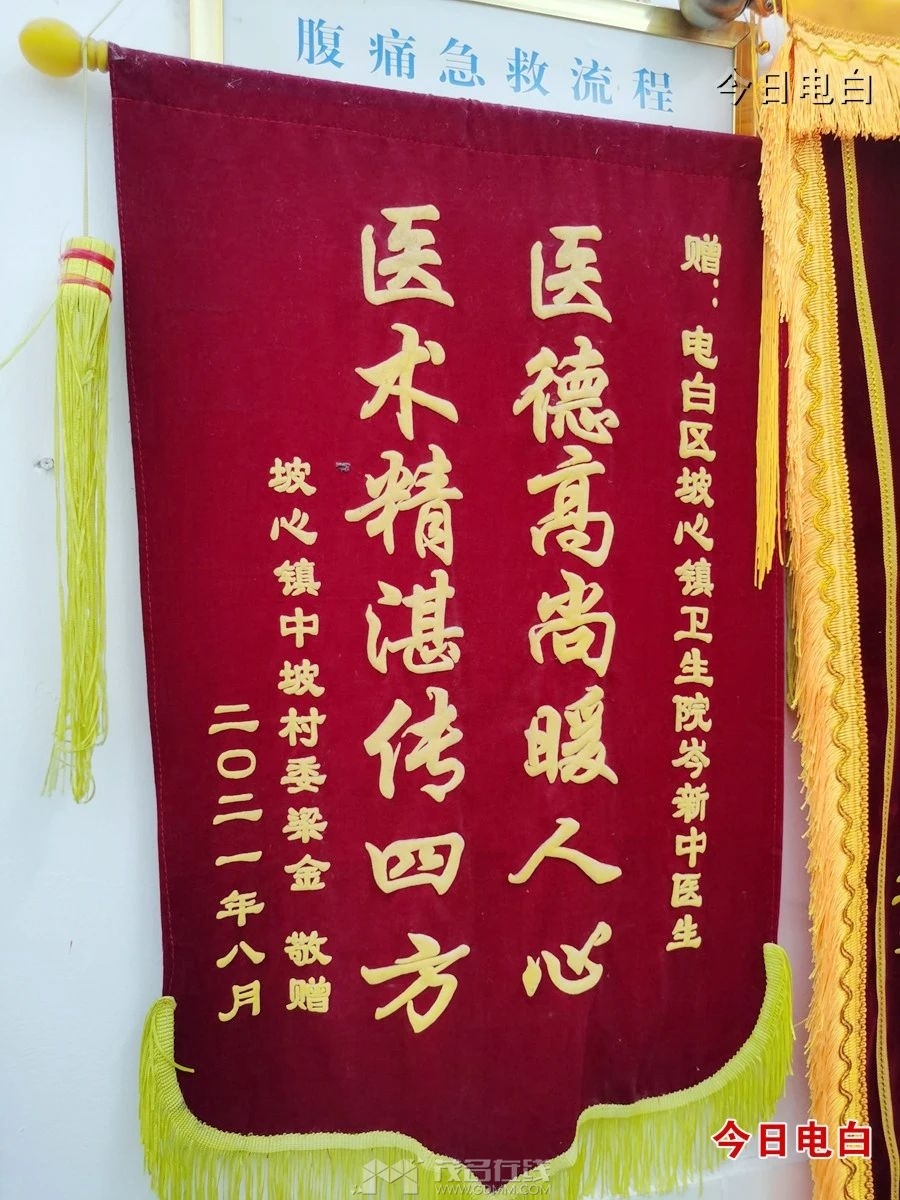 腹痛急救流程
今日电白
赠：电白区坡心镇卫生院岑新中医生
医德高尚暖人心
医术精湛传四方
坡心镇中坡村委梁金 敬赠
二〇二一年八月
今日电白
茂名在线
WWW.GDMM.COM